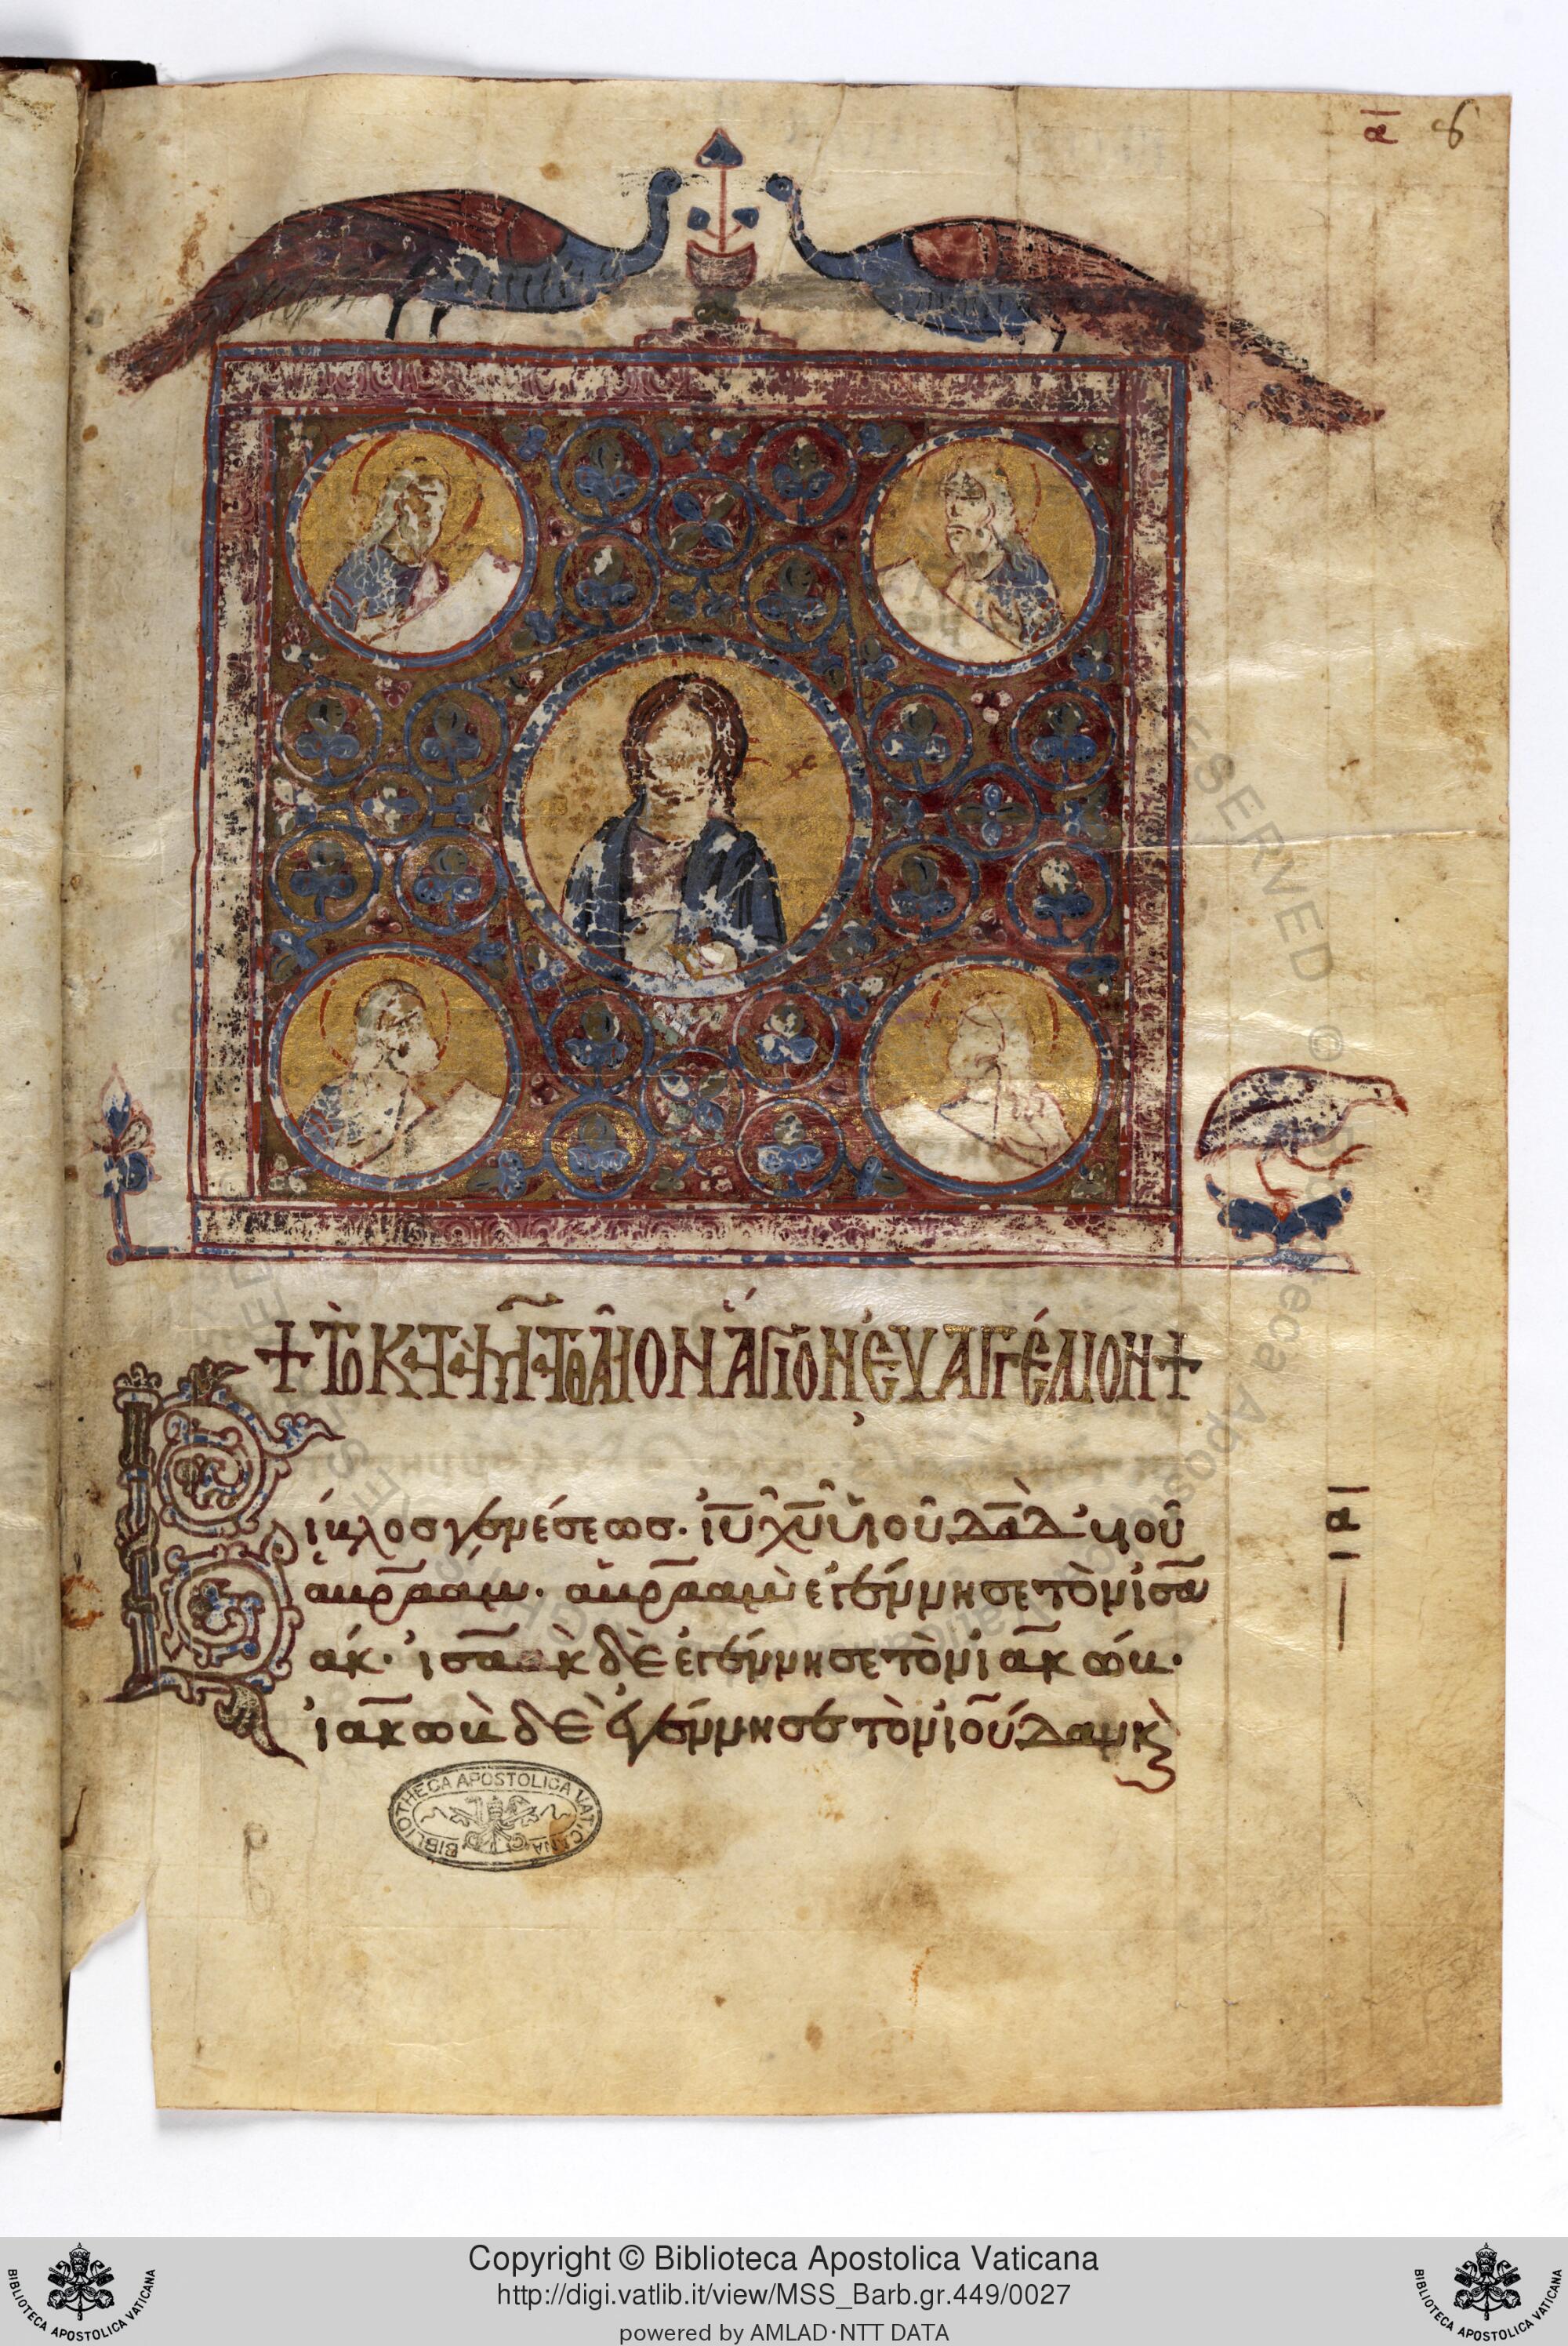 ᾱ 8
+ Τὸ Κατὰ Ματθαῖον ἅγιον εὐαγγέλιον +
Βίβλος γενέσεως· ῙῩ Χ̅Υ̅ υἱοῦ Δ̅Α̅Δ̅ υἱοῦ
ἀβρααμ· ἀβρααμ ἐγέννησε τὸν ἰσα
άκ· ἰσαακ δὲ ἐγέννησε τὸν ἰακώβ·
ἰακωβ δὲ ἐγέννησε τὸν ἰούδαν κ(αὶ)
ᾱ
BIBLIOTHECA APOSTOLICA VATICANA
Copyright © Biblioteca Apostolica Vaticana
http://digi.vatlib.it/view/MSS_Barb.gr.449/0027
powered by AMLAD·NTT DATA
BIBLIOTECA APOSTOLICA VATICANA
BIBLIOTECA APOSTOLICA VATICANA